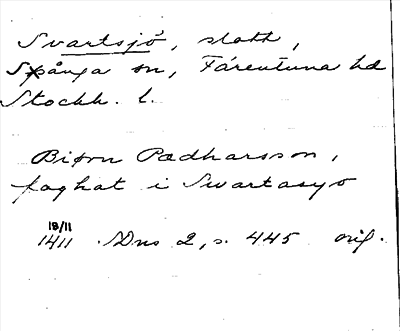 Svartsjö, slott,
Spånga sn, Färentuna hd
Stockh. l.
Biørn Pædharsson,
foghat i Swartasyo
19/11
1411 . SDns 2, s. 445 orig.